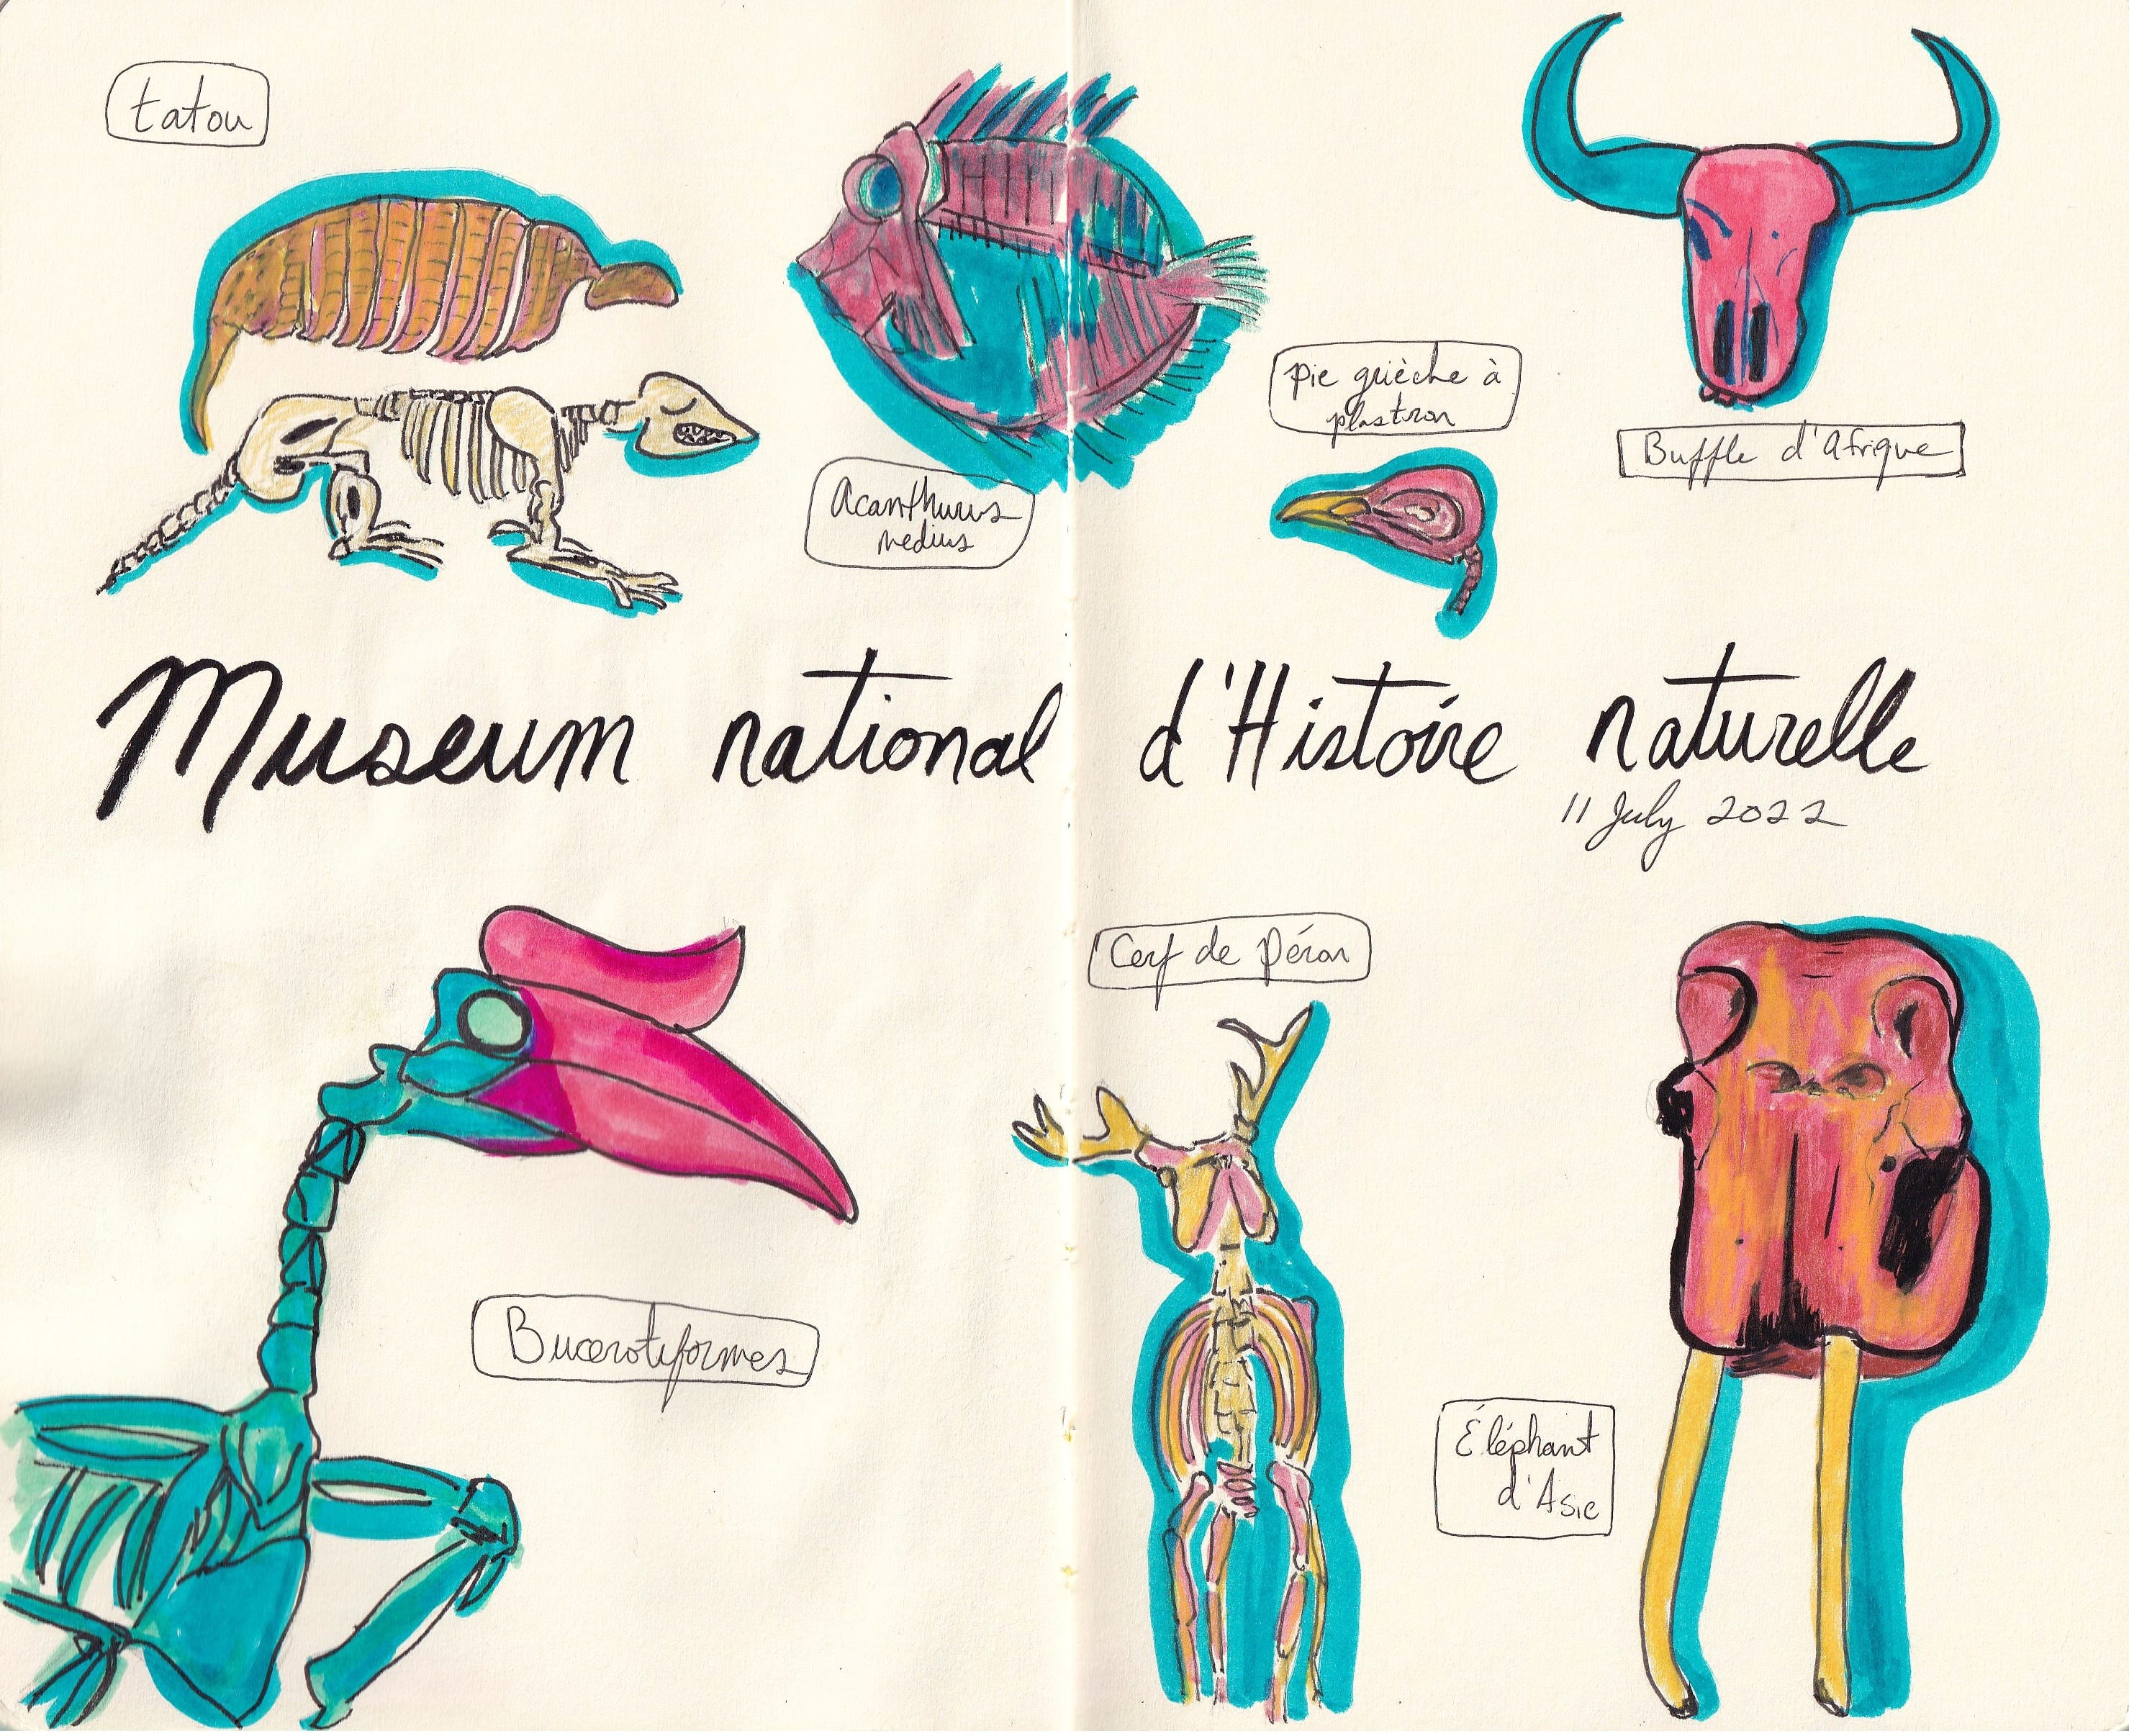 tatou
Acanthurus
medius
pie grièche à
plastron
Buffle d'Afrique
Museum national d'Histoire naturelle
11 July 2022
Cerf de Péron
Bucerotiformes
Éléphant
d'Asie